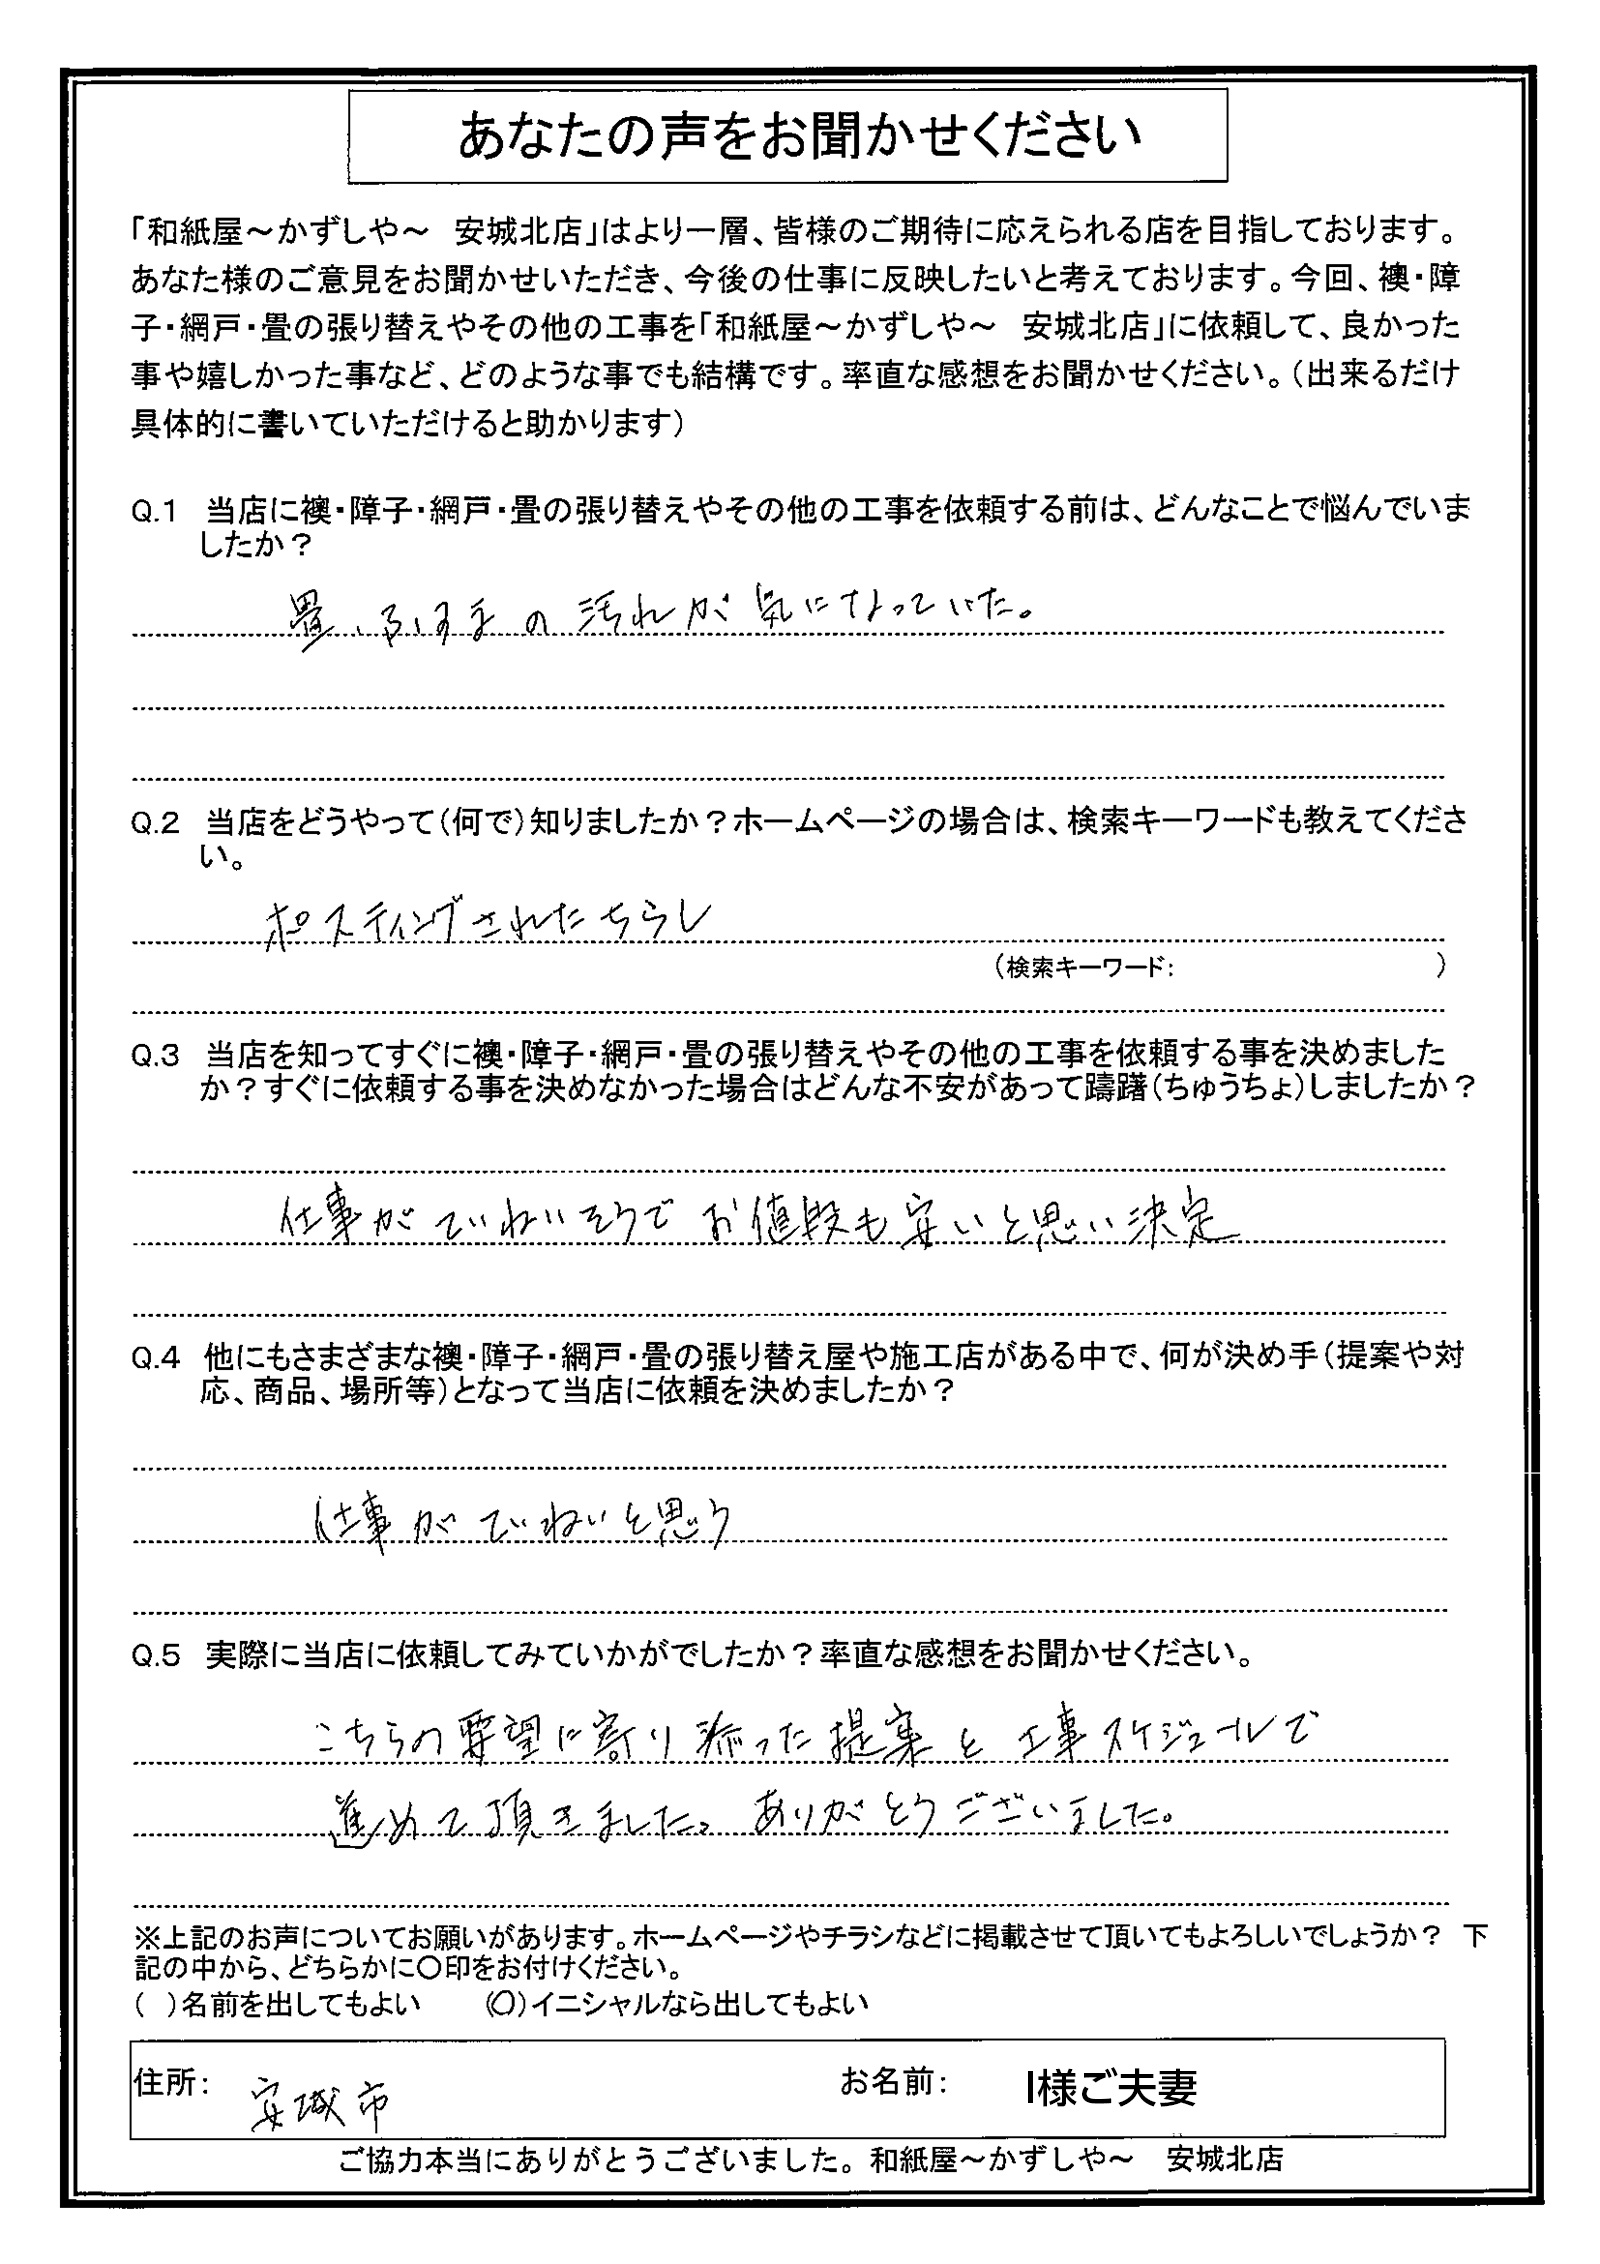 あなたの声をお聞かせください
「和紙屋～かずしや～　安城北店」はより一層、皆様のご期待に応えられる店を目指しております。
あなた様のご意見をお聞かせいただき、今後の仕事に反映したいと考えております。今回、襖・障
子・網戸・畳の張り替えやその他の工事を「和紙屋～かずしや～　安城北店」に依頼して、良かった
事や嬉しかった事など、どのような事でも結構です。率直な感想をお聞かせください。（出来るだけ
具体的に書いていただけると助かります）
Q.1　当店に襖・障子・網戸・畳の張り替えやその他の工事を依頼する前は、どんなことで悩んでいま
したか？
畳、ふすまの汚れが気になっていた。
Q.2　当店をどうやって（何で）知りましたか？ホームページの場合は、検索キーワードも教えてくださ
い。
ポスティングされたちらし
（検索キーワード：　　　　　　　　　　）
Q.3　当店を知ってすぐに襖・障子・網戸・畳の張り替えやその他の工事を依頼する事を決めました
か？すぐに依頼する事を決めなかった場合はどんな不安があって躊躇（ちゅうちょ）しましたか？
仕事がていねいそうでお値段も安いと思い決定
Q.4　他にもさまざまな襖・障子・網戸・畳の張り替え屋や施工店がある中で、何が決め手（提案や対
応、商品、場所等）となって当店に依頼を決めましたか？
仕事がていねいと思う
Q.5　実際に当店に依頼してみていかがでしたか？率直な感想をお聞かせください。
こちらの要望に寄り添った提案と工事スケジュールで
進めて頂きました。ありがとうございました。
※上記のお声についてお願いがあります。ホームページやチラシなどに掲載させて頂いてもよろしいでしょうか？　下
記の中から、どちらかに〇印をお付けください。
（　）名前を出してもよい　　（〇）イニシャルなら出してもよい
住所：　安城市　　お名前：　I様ご夫妻
ご協力本当にありがとうございました。和紙屋～かずしや～　安城北店